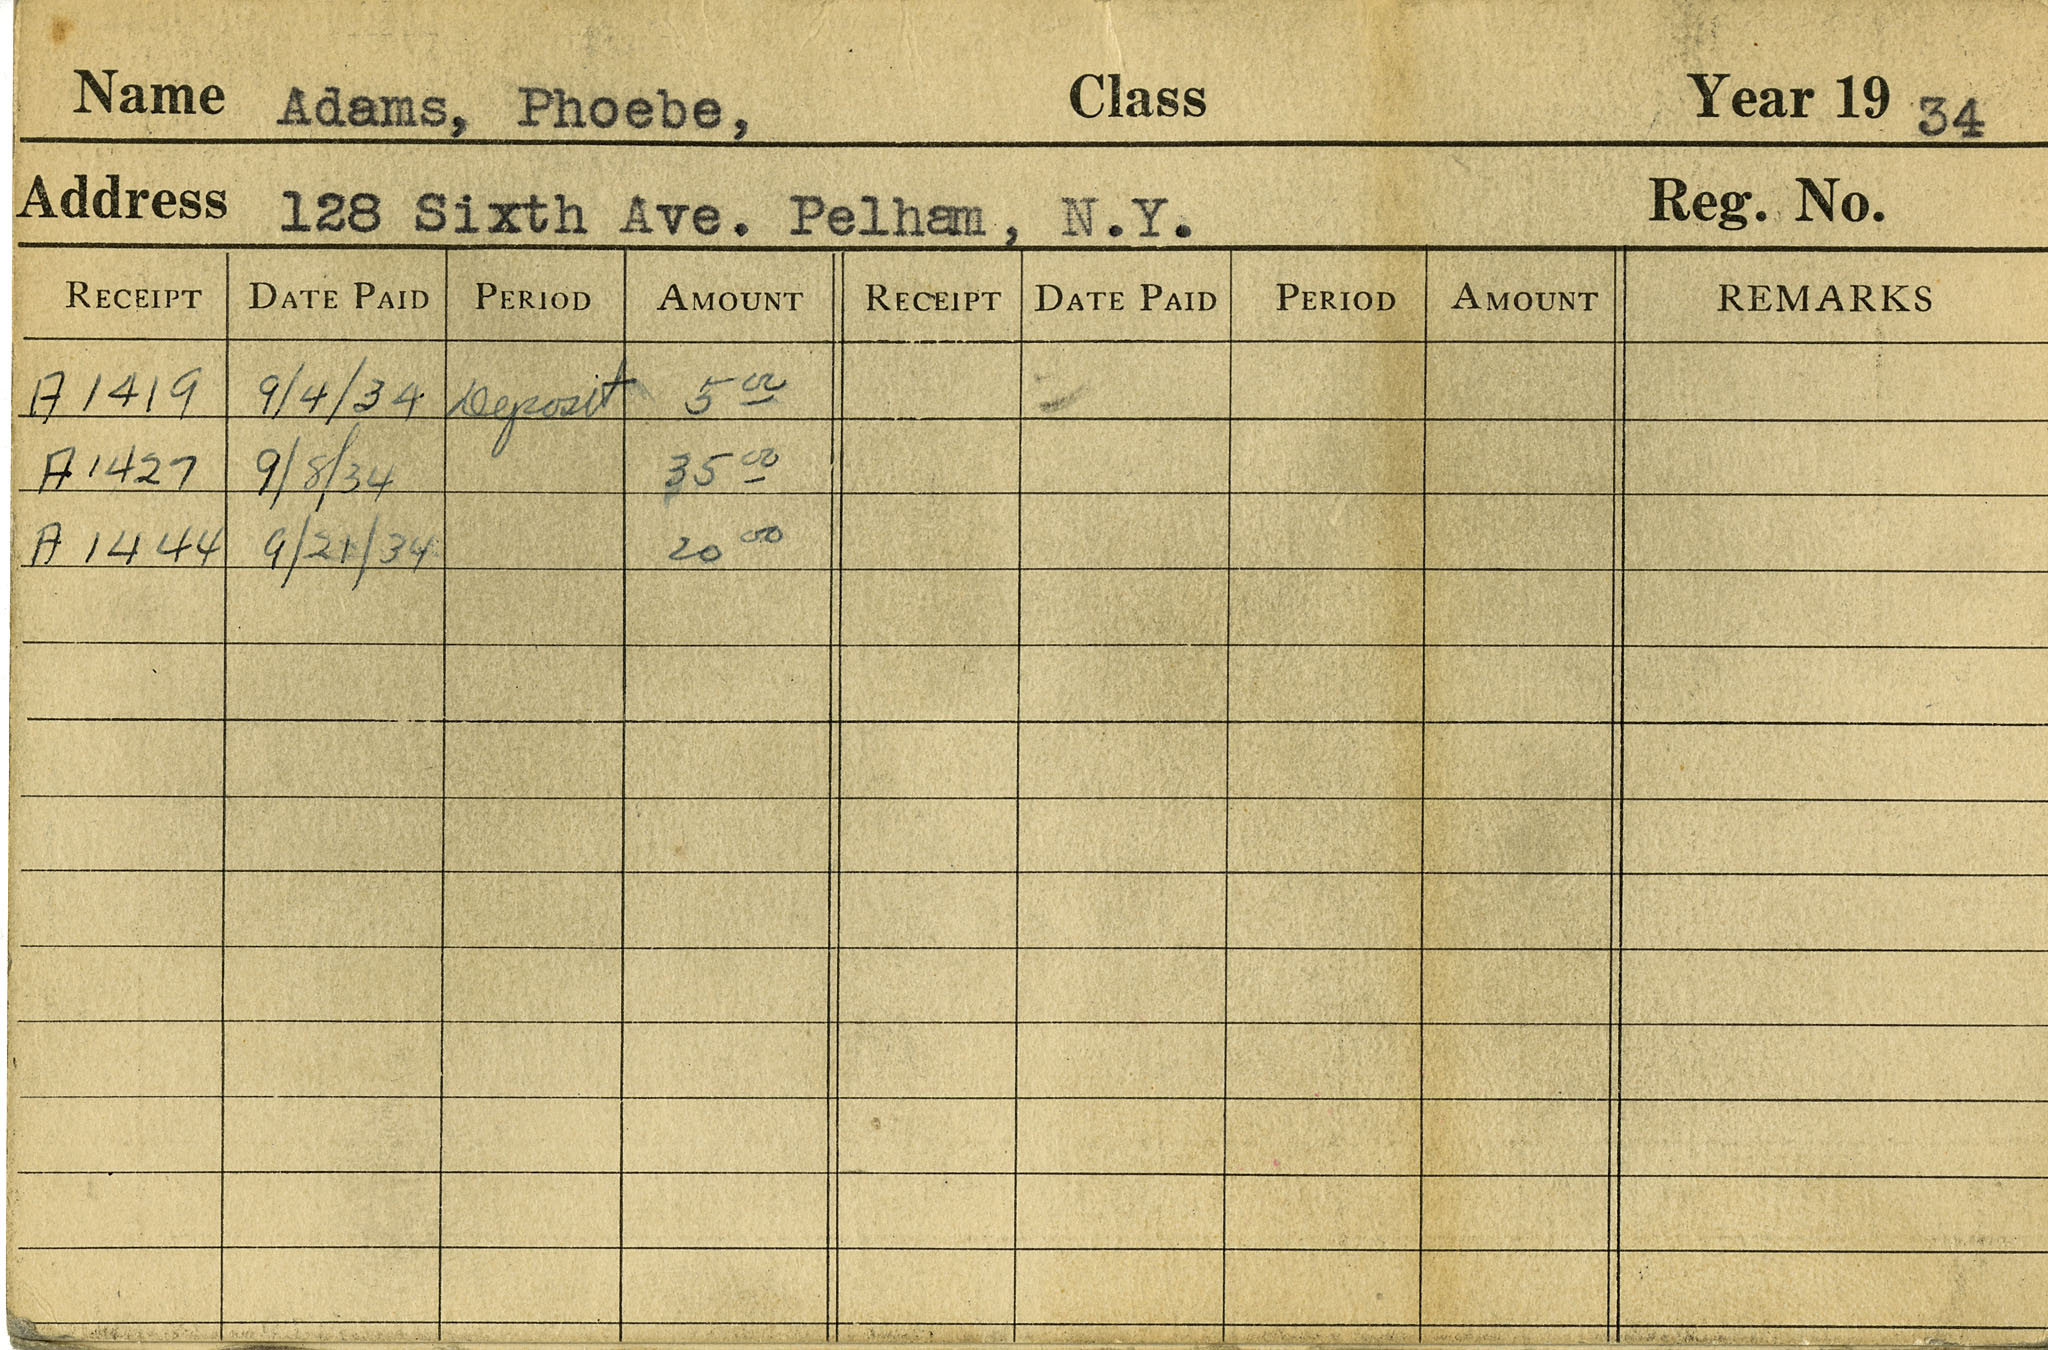 Name Adams, Phoebe, Class Year 19 34
Address 128 Sixth Ave. Pelham, N.Y. Reg. No.
RECEIPT DATE PAID PERIOD AMOUNT RECEIPT DATE PAID PERIOD AMOUNT REMARKS
A 1419 9/4/34 Deposit 5 00
A 1427 9/8/34 35 00
A 1444 9/21/34 20 00